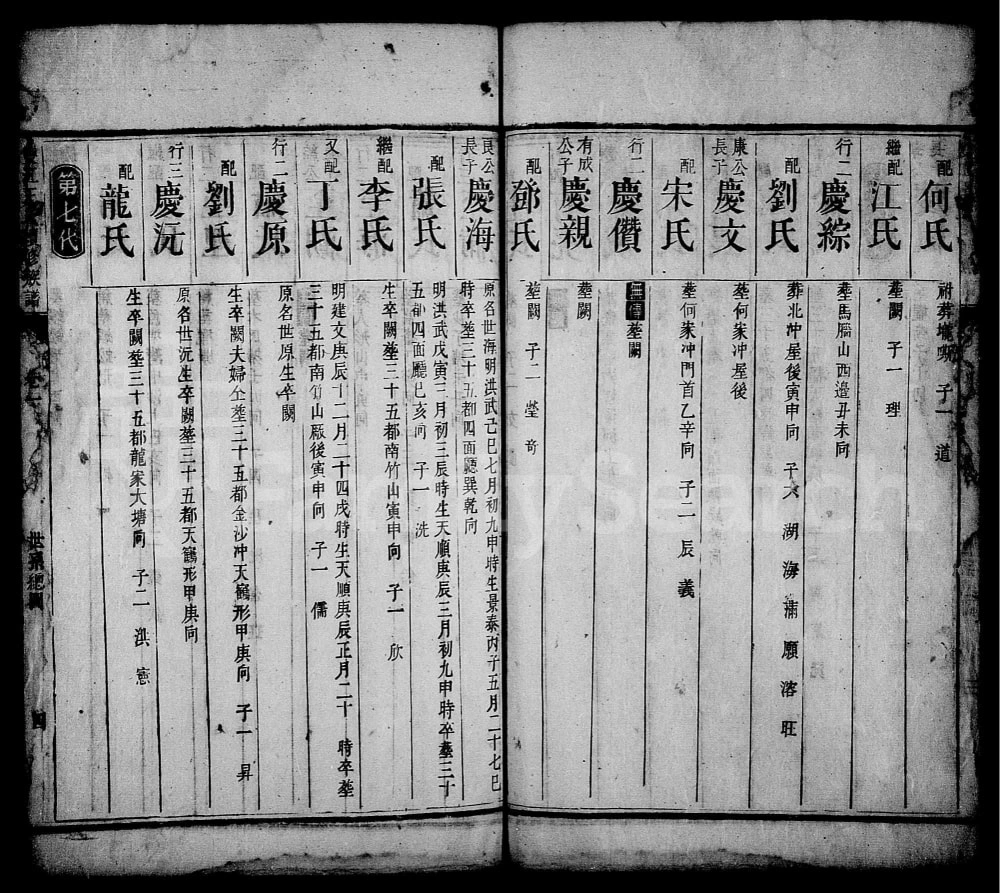 配 何氏 祔葬 子一 道
繼配 江氏 塟闕 子一 理
行二 慶綜 塟馬腦山西邉丑未向
配 劉氏 葬北冲屋後寅申向 子六 湖 海 滿 願 溶 旺
康公長子 慶文 塟何家冲屋後
配 宋氏 塟何家冲門首乙辛向 子二 辰 義
行二 慶儹 無傳 塟闕
有成公子 慶親 塟闕
配 鄧氏 塟闕 子二 瑩 奇
良公長子 慶海 原名世海明洪武己巳七月初九申時生景泰丙子五月二十七巳時卒塟三十五都四面廳巽乾向
配 張氏 明洪武戊寅三月初三辰時生天順庚辰三月初九申時卒塟三十五都四面廳巳亥向 子一 洗
繼配 李氏 生卒闕塟三十五都南竹山寅申向 子一 欣
又配 丁氏 明建文庚辰十二月二十四戌時生天順庚辰正月二十 時卒塟三十五都南竹山厰後寅申向 子一 儒
行二 慶原 原名世原生卒闕
配 劉氏 生卒闕夫婦仝塟三十五都金沙冲天鵝形甲庚向 子一 昇
行三 慶沅 原名世沅生卒闕塟三十五都天鵝形甲庚向
配 龍氏 生卒闕塟三十五都龍家大塘向 子二 洪 憲
第七代
族譜
世系總圖
四